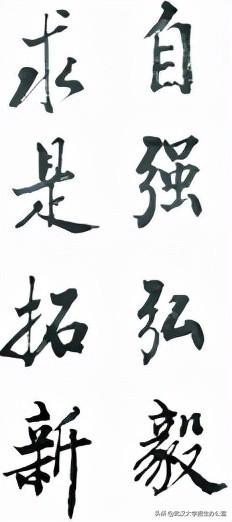 自强弘毅
求是拓新
头条 @武汉大学招生办公室